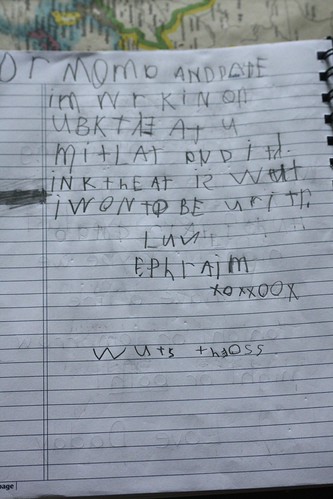 Dr MOMO ANDDADE
im WrKiNON
UBKTHEAT U
MiTLAT ANDiTh
iNKthEAT iS
iWONTO BE uriTr
LUV
EPhrAim
XOXXOOX
wuts thaoss